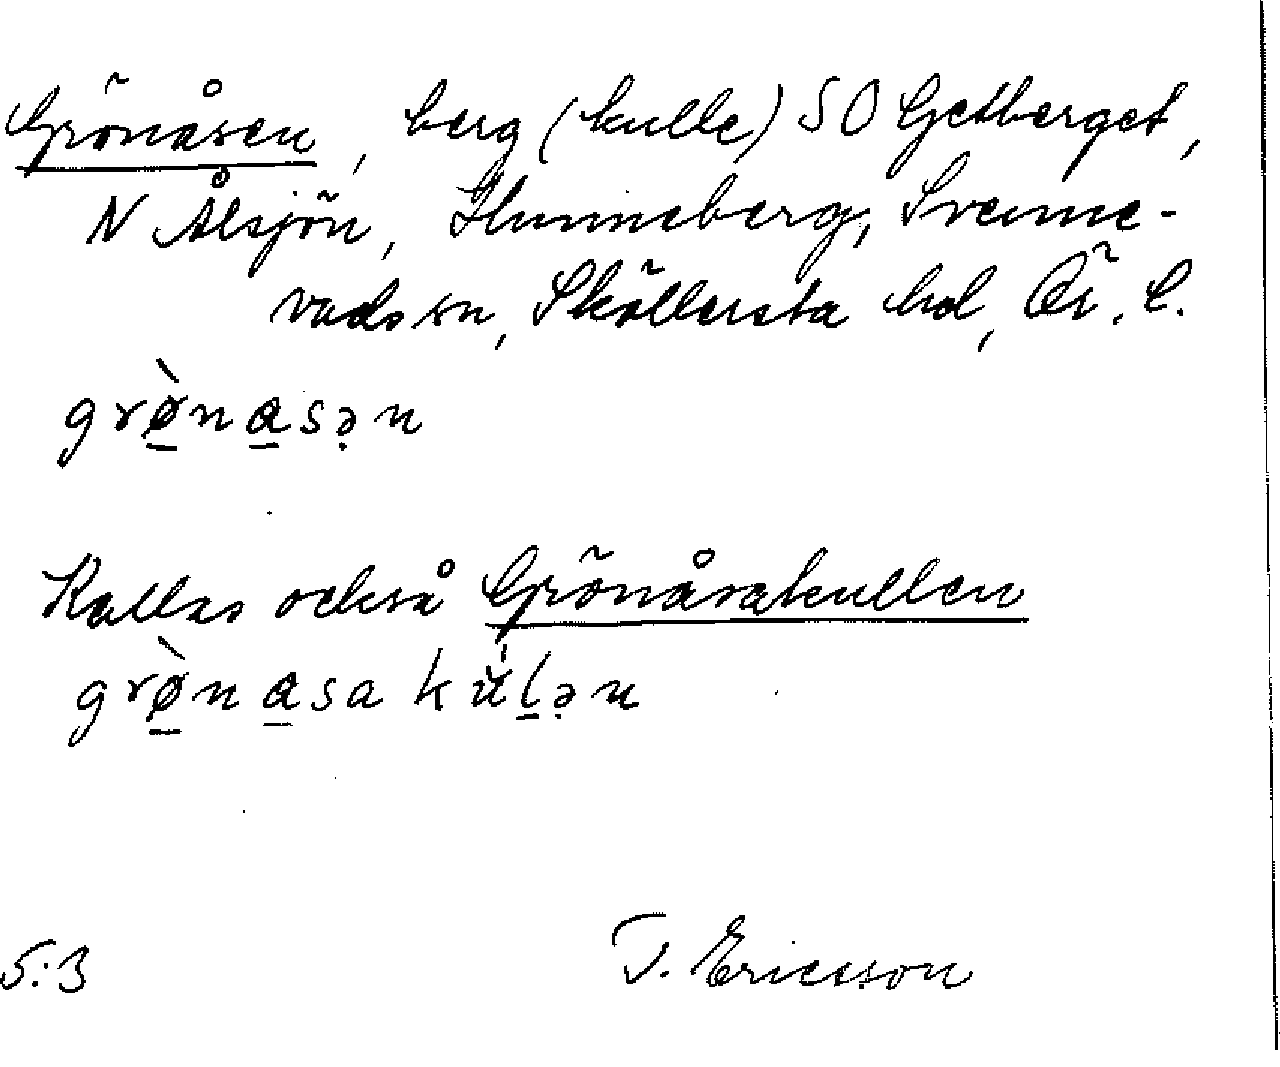 Grönåsen, berg (kulle) SO Getberget,
N Älsjön, Hunneberg, Svenne-
vads sn, Sköllersta hd, Ör. l.
grø̱̀na̱sə̣n
Kallas också Grönåsakullen
grø̱̀na̱sa kúl̠ə̣n
5:3 T. Ericsson